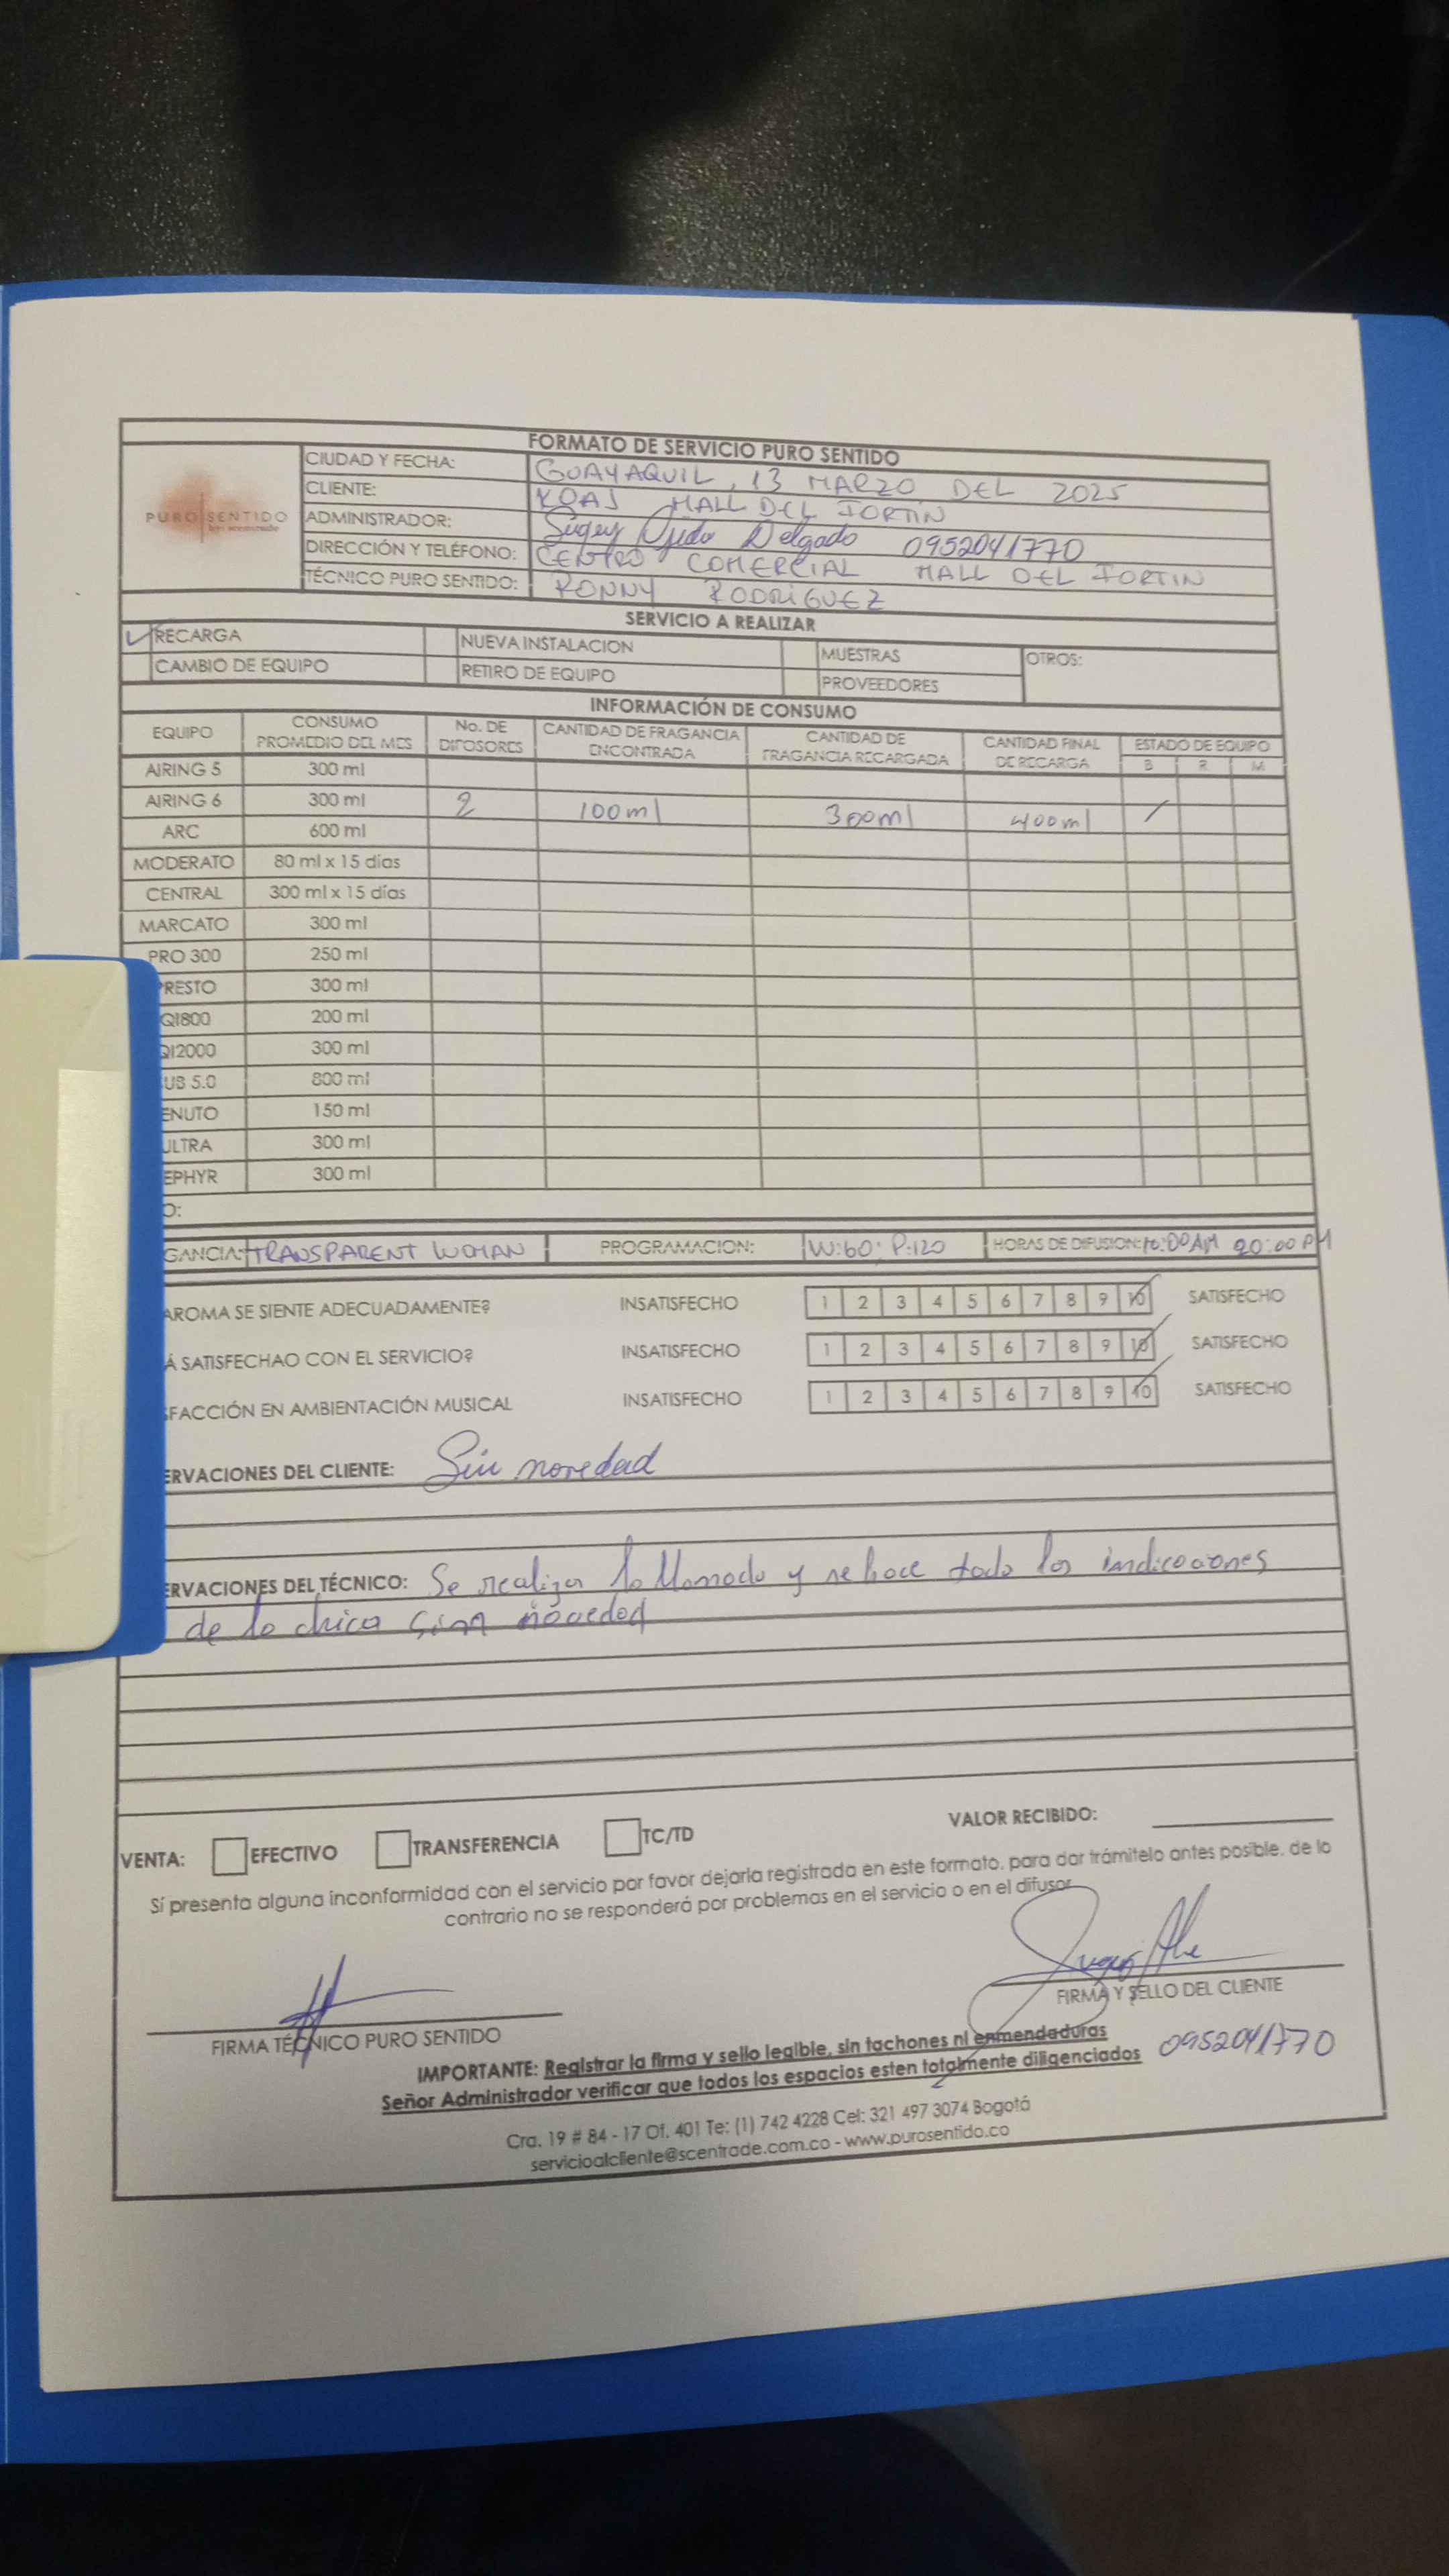 FORMATO DE SERVICIO PURO SENTIDO
PURO SENTIDO
CIUDAD Y FECHA: GUAYAQUIL, 13 MARZO DEL 2025
CLIENTE: KOAJ MALL DEL FORTIN
ADMINISTRADOR: Sugey Ojeda Delgado 0952041770
DIRECCIÓN Y TELÉFONO: CENTRO COMERCIAL MALL DEL FORTIN
TÉCNICO PURO SENTIDO: RONNY RODRIGUEZ
SERVICIO A REALIZAR
RECARGA NUEVA INSTALACION MUESTRAS OTROS:
CAMBIO DE EQUIPO RETIRO DE EQUIPO PROVEEDORES
INFORMACIÓN DE CONSUMO
EQUIPO CONSUMO PROMEDIO DEL MES No. DE DIFOSORES CANTIDAD DE FRAGANCIA ENCONTRADA CANTIDAD DE FRAGANCIA RECARGADA CANTIDAD FINAL DE RECARGA ESTADO DE EQUIPO
B R M
AIRING 5 300 ml
AIRING 6 300 ml 2 100ml 300ml 400ml
ARC 600 ml
MODERATO 80 ml x 15 días
CENTRAL 300 ml x 15 días
MARCATO 300 ml
PRO 300 250 ml
PRESTO 300 ml
QI800 200 ml
QI2000 300 ml
UB 5.0 800 ml
ENUTO 150 ml
ULTRA 300 ml
EPHYR 300 ml
O:
GANCIA: TRANSPARENT WOMAN PROGRAMACION: W:60; P:120 HORAS DE DIFUSION: 10:00AM 20:00 PM
AROMA SE SIENTE ADECUADAMENTE? INSATISFECHO 1 2 3 4 5 6 7 8 9 10 SATISFECHO
Á SATISFECHAO CON EL SERVICIO? INSATISFECHO 1 2 3 4 5 6 7 8 9 10 SATISFECHO
SFACCIÓN EN AMBIENTACIÓN MUSICAL INSATISFECHO 1 2 3 4 5 6 7 8 9 10 SATISFECHO
ERVACIONES DEL CLIENTE: Sin novedad
ERVACIONES DEL TÉCNICO: Se realiza la llamada y se hace toda las indicaciones
de la chica sin novedad
VENTA: EFECTIVO TRANSFERENCIA TC/TD VALOR RECIBIDO:
Sí presenta alguna inconformidad con el servicio por favor dejarla registrada en este formato, para dar trámitelo antes posible, de lo
contrario no se responderá por problemas en el servicio o en el difusor
FIRMA TÉCNICO PURO SENTIDO
FIRMA Y SELLO DEL CLIENTE
0952041770
IMPORTANTE: Registrar la firma y sello legible, sin tachones ni enmendaduras
Señor Administrador verificar que todos los espacios esten totalmente diligenciados
Cra. 19 # 84 - 17 Of. 401 Te: (1) 742 4228 Cel: 321 497 3074 Bogotá
servicioalcliente@scentrade.com.co - www.purosentido.co